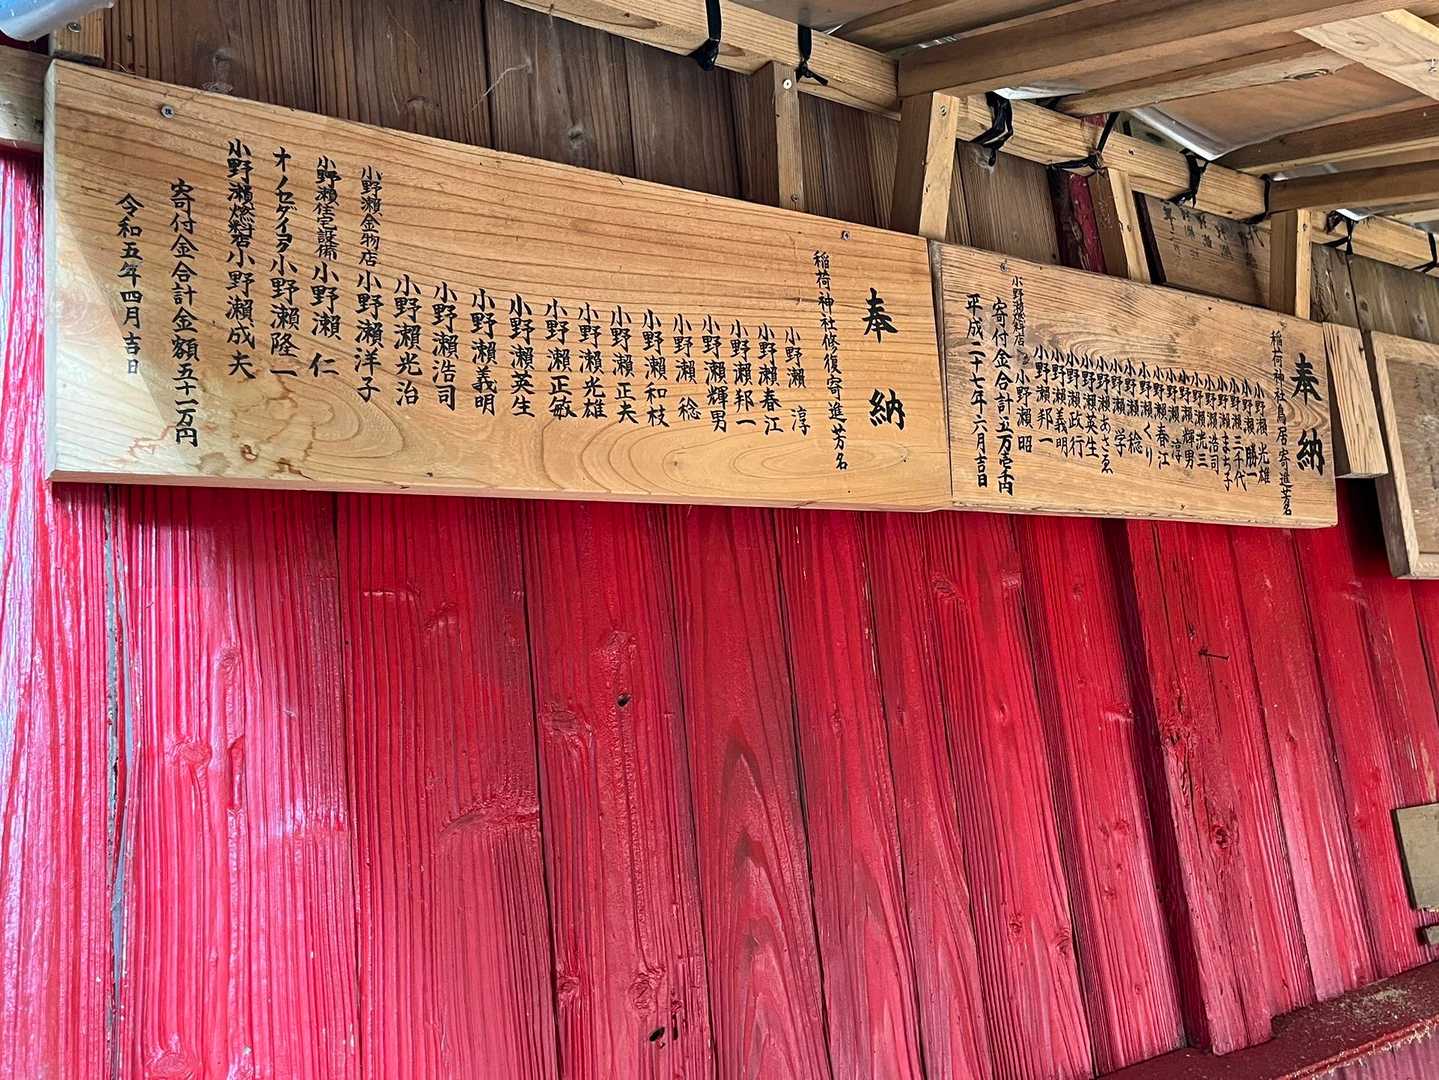 奉納
稲荷神社鳥居寄進芳名
小野瀬光雄
小野瀬勝一
小野瀬三千代
小野瀬まち子
小野瀬浩司
小野瀬洸三
小野瀬輝男
小野瀬淳
小野瀬春江
小野瀬くり
小野瀬稔
小野瀬学
小野瀬あさゑ
小野瀬英生
小野瀬政行
小野瀬義明
小野瀬邦一
小野瀬燃料店 小野瀬昭
寄付金合計五万壱千円
平成二十七年六月吉日
奉納
稲荷神社修復寄進芳名
小野瀬淳
小野瀬春江
小野瀬邦一
小野瀬輝男
小野瀬稔
小野瀬和枝
小野瀬正夫
小野瀬光雄
小野瀬正敏
小野瀬英生
小野瀬義明
小野瀬浩司
小野瀬光治
小野瀬金物店 小野瀬洋子
小野瀬住宅設備 小野瀬仁
オノセゲイヨク 小野瀬隆一
小野瀬燃料店 小野瀬成夫
寄付金合計金額五十二万円
令和五年四月吉日